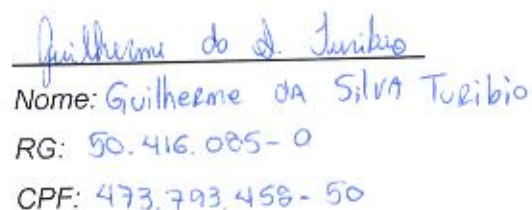 Guilherme da S. Turibio
Nome: Guilherme DA SilvA Turibio
RG: 50.416.085-0
CPF: 473.793.458-50